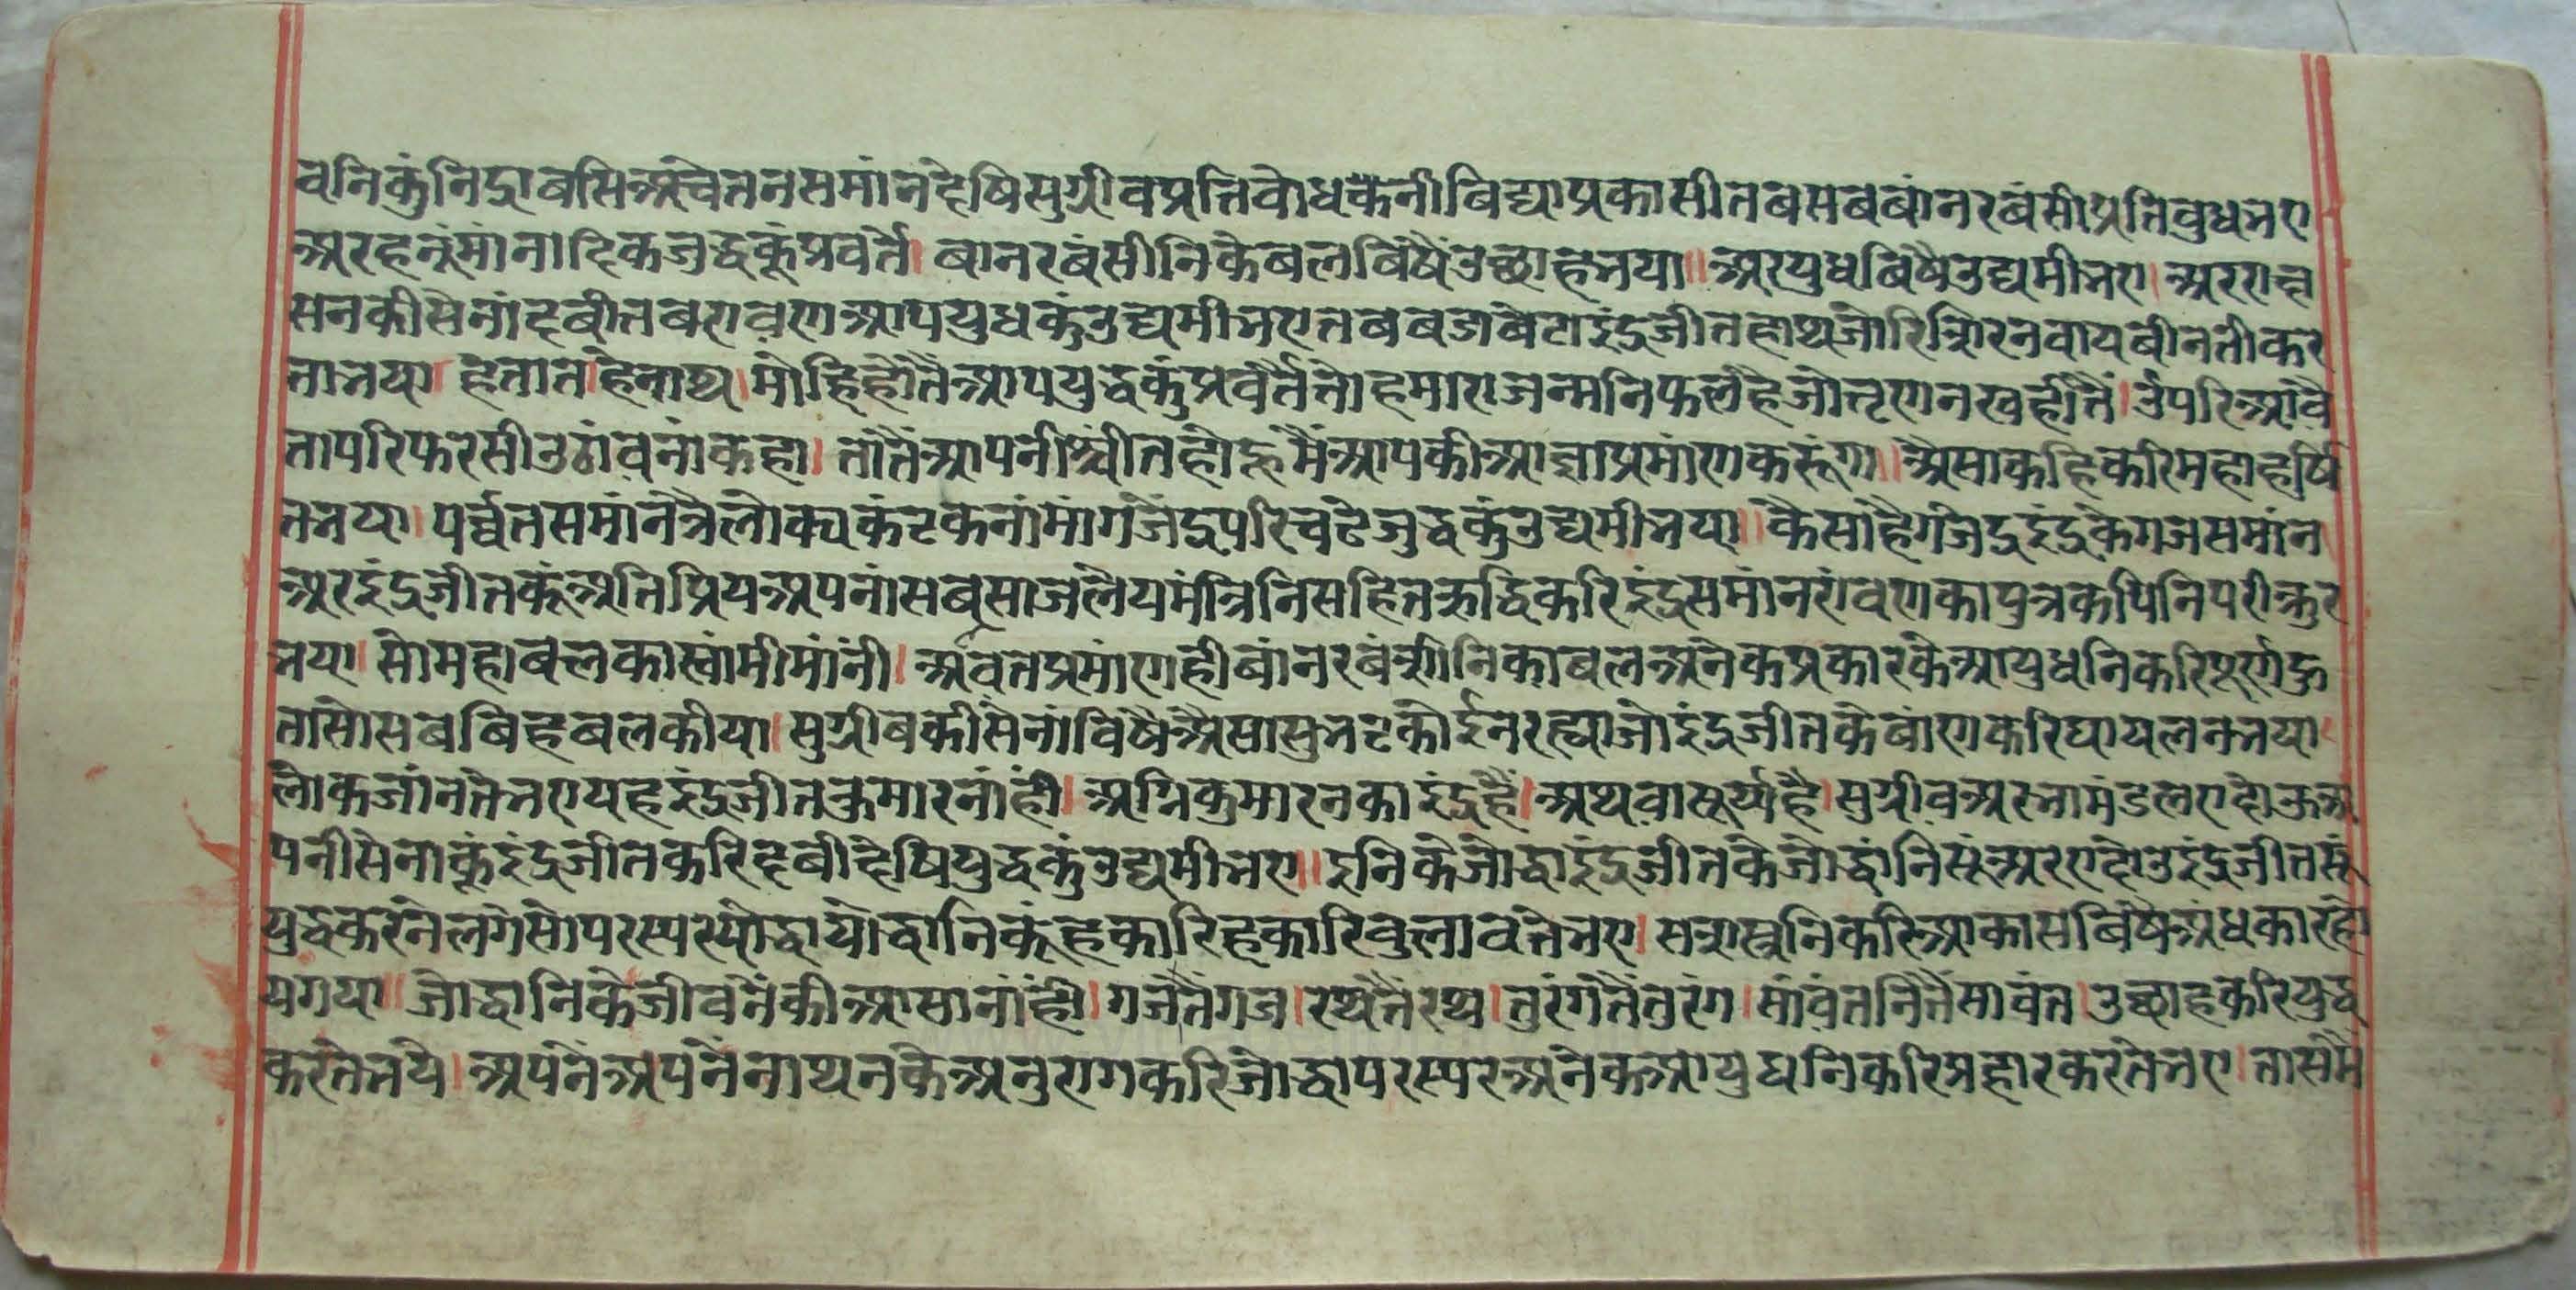 वनिकुंनिद्राबसिअचेतनसमांनदेषिसुग्रीवप्रतिबोधकनीबिद्याप्रकासीतबसबबांनरबंसीप्रतिबुधभए
अरहनुंमांनादिकजुद्धकूंप्रवर्ते। बानरबंसीनिकेबलबिषैंउछाहभया॥ अरयुधबिषैउद्यमीभए। अरराक्ष
सनकीसैनांदबीतबरावणआपयुधकुंउद्यमीभएतबबडाबेटाइंद्रजीतहाथजोरिसिरनवायबीनतीकर
ताभया। हेतातहेनाथ। मोहिहोतैंआपयुद्धकुंप्रवर्तैतोहमाराजन्मनिफलहैजोतृणनखहीतैं। उंपरिआवै
तापरिफरसीउठांवनांकहा। तांतैंआपनीश्चींतहोहूमैंआपकीआज्ञाप्रमांणकरूंगा॥ अैसाकहिकरिमहाहर्षि
तभया। पर्व्वतसमांनत्रैलोक्यकंटकनांमांगजेंद्रपरिचढेजुद्धकुंउद्यमीभया॥ कैसाहैगजेंद्रइंद्रकेगजसमांन
अरइंद्रजीतकूंअतिप्रियअपनांसबसाजलेयमंत्रिनिसहितऋद्धिकरिइंद्रसमांनरांवणकापुत्रकपिनिपरीक्रुर
भया। सोमहाबलकास्वांमीमांनी। आवतेप्रमांणहीबांनरबंसीनिकाबलअनेकप्रकारकेआयुधनिकरिपूर्णहु
तासोसबबिहबलकीया। सुग्रीबकीसैनांविषैअैसासुभटकोईनरह्याजोइंद्रजीतकेबांणकरिघायलनभया।
लोकजांनतेभएयहइंद्रजीतकुमारनांहीं। अग्निकुमारनकाइंद्रहैं। अथवासूर्य्यहै। सुग्रीवअरभामंडलएदोऊअ
पनीसैनाकूंइंद्रजीतकरिदबीदेषियुद्धकुंउद्यमीभए॥ इनिकेजोद्धाइंद्रजीतकेजोद्धांनिसूंअरएदोउइंद्रजीतसूं
युद्धकरनेलगेसोपरस्परयोद्धायोद्धानिकूंहकारिहकारिबुलावतेभए। सस्त्रास्त्रनिकरिआकासबिषैअंधकारहो
यगया॥ जोद्धानिकेजीवनेकीआसानांहीं। गजतैंगज। रथतैंरथ। तुरंगतैंतुरंग। सांवंतनितैंसावंत। उछाहकरियुद्ध
करतेभये। अपनेअपनेनाथनकेअनुरागकरिजोद्धापरस्परअनेकआयुधनिकरिप्रहारकरतेभए। तासमै